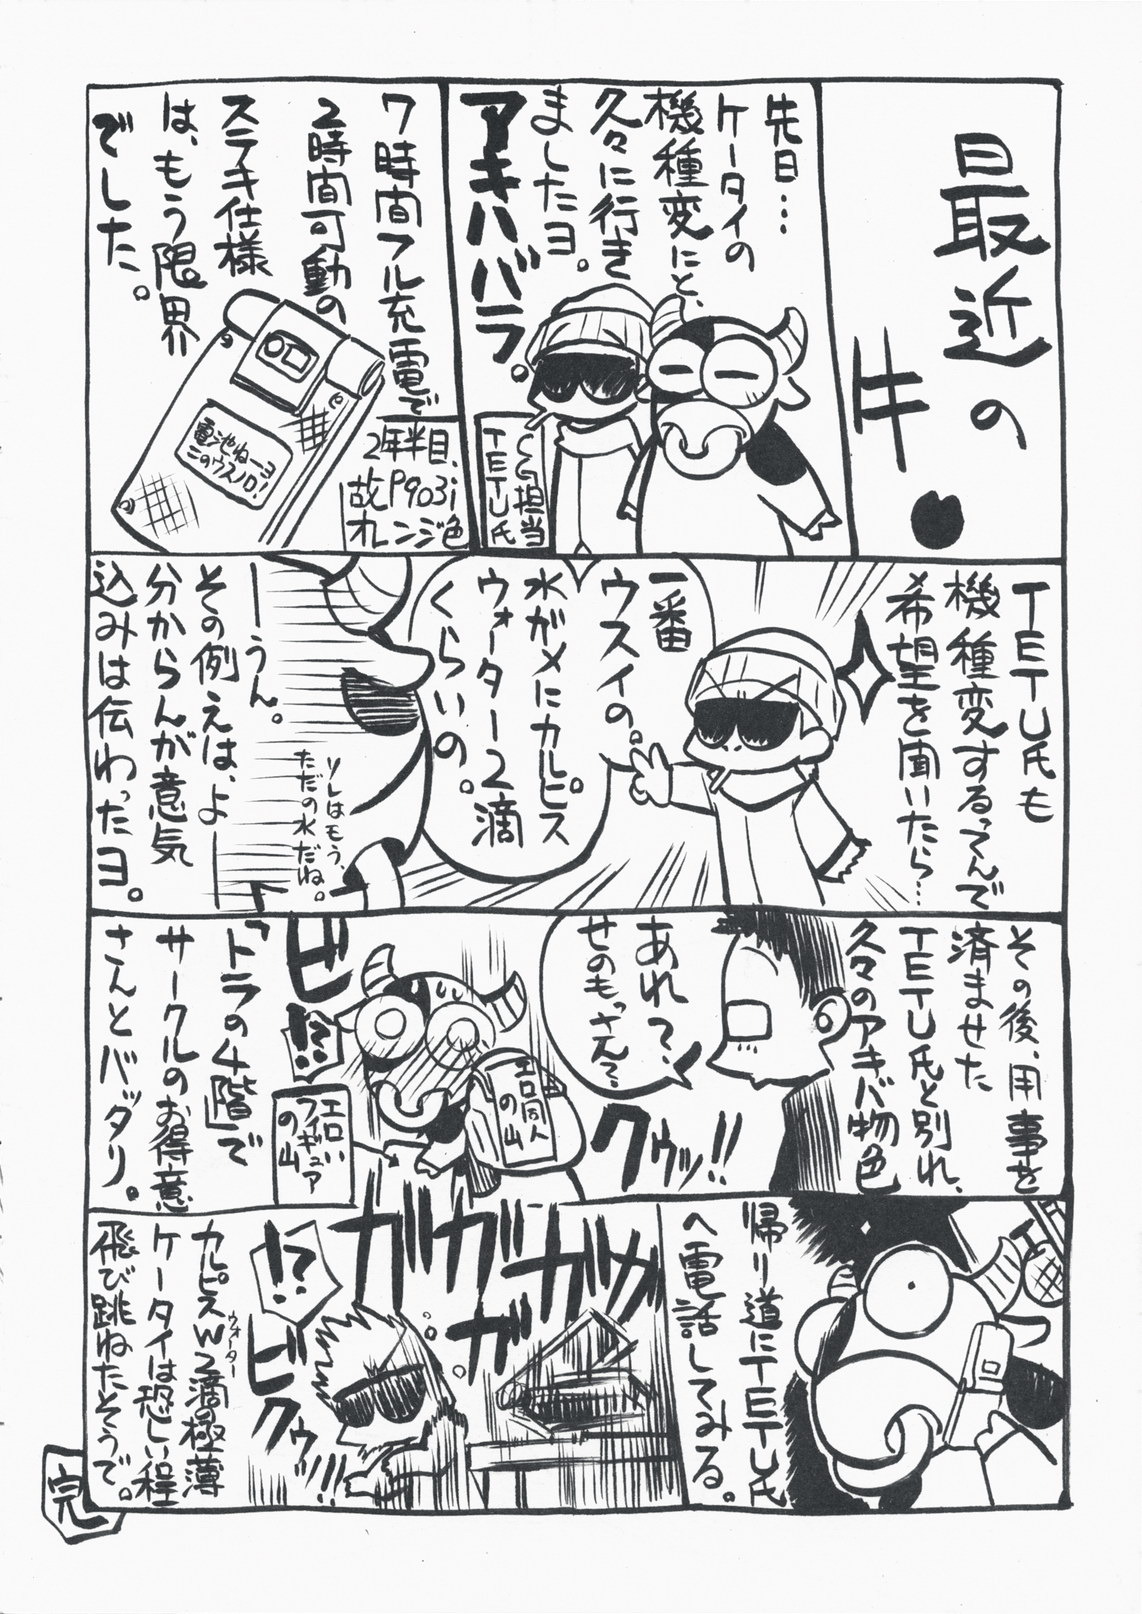 最近の
キ
先日…
ケータイの
機種変にと、
久々に行き
ましたヨ。
アキハバラ。
CG担当
TETU氏
7時間フル充電で
2時間可動の
ステキ仕様
は、もう限界
でした。
電池ねーヨ
このウスノロ!
2年半目、
故P903i
オレンジ色
TETU氏も
機種変するってんで
希望を聞いたら…
一番
ウスイの。
水ガメにカルピス
ウォーター2滴
くらいの。
ソレはもう、
ただの水だね。
ーうん。
その例えは、よー
分からんが意気
込みは伝わったヨ。
その後、用事を
済ませた
TETU氏と別れ、
久々のアキバ物色
あれ?
せのもっさん?
クゥッ!!
ビ
!?
エロ同人
の山
エロい
フィギュア
の山
「トラの4階」で
サークルのお得意
さんとバッタリ。
帰り道にTETU氏
へ電話してみる。
ガガガガッ
ガ
!?
ビクゥッ!!
カルピスW2滴の極薄
ウォーター
ケータイは恐しい程
飛び跳ねたそうで。
完